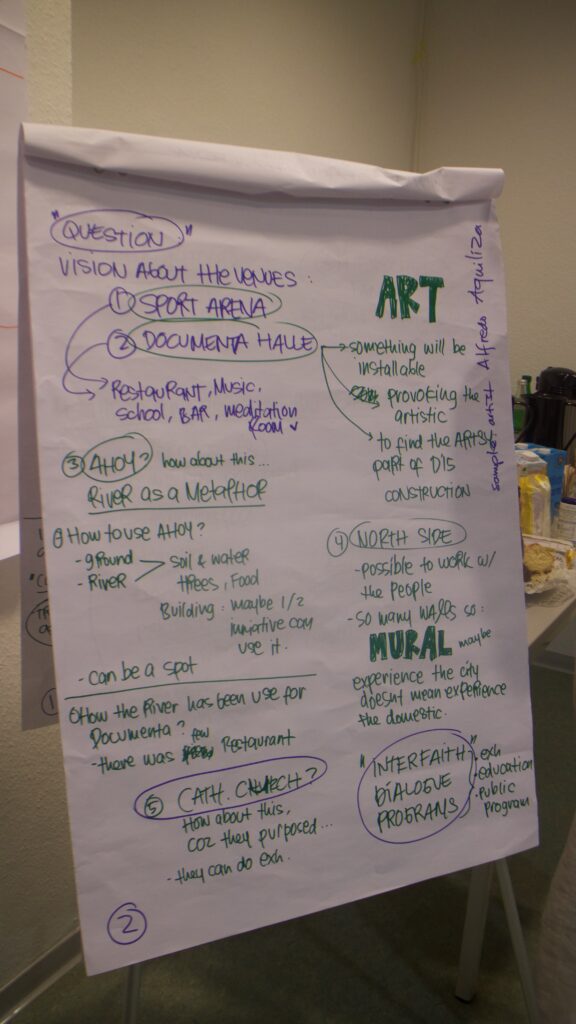 "QUESTION"
VISION ABOUT the VENUES :
① SPORT ARENA
② DOCUMENTA HALLE
RESTAURANT, MUSIC,
school, BAR, meditation
ROOM
③ AHOY? how about this ...
RIVER AS A METAPHOR
How to use AHOY?
- ground
- River
soil & water
threes, Food
Building : maybe 1/2
iniative can
use it.
- can be a spot
How the River has been use for
Documenta?
- there was few Restaurant
⑤ CATH. CHURCH?
How about this,
coz they purposed...
- they can do exh.
②
ART
something will be
installable
provoking the
artistic
to find the ARTIST
part of D15
CONSTRUCTION
sample: artist Alfredo Aquiliza
④ NORTH SIDE
- possible to work w/
the people
- so many WALLS so :
MURAL maybe
experience the city
doesnt mean experience
the domestic.
"INTERFAITH
DIALOGUE
PROGRAMS"
· exh
· education
· public
program